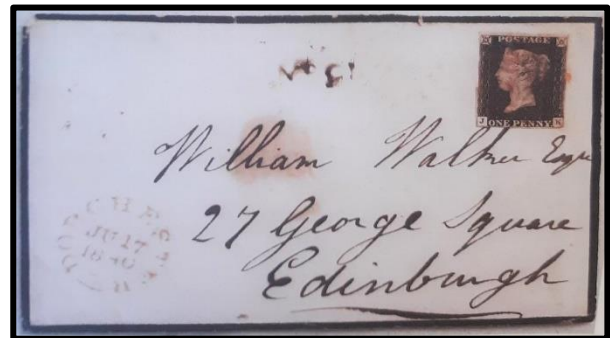 POSTAGE
J K
ONE PENNY
No 5
William Walker Esqre
27 George Square
Edinburgh
JU 17
1840